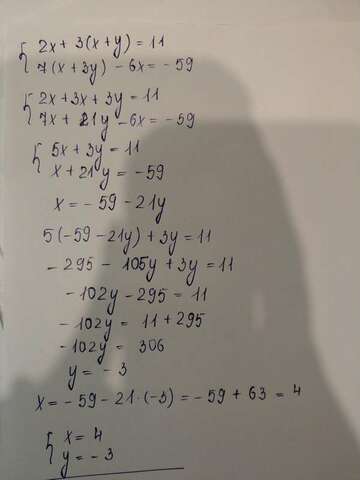 { 2x + 3(x + y) = 11
7(x + 3y) - 6x = - 59
{ 2x + 3x + 3y = 11
7x + 21y - 6x = - 59
{ 5x + 3y = 11
x + 21y = - 59
x = - 59 - 21y
5(- 59 - 21y) + 3y = 11
- 295 - 105y + 3y = 11
- 102y - 295 = 11
- 102y = 11 + 295
- 102y = 306
y = - 3
x = - 59 - 21 · (-3) = - 59 + 63 = 4
{ x = 4
y = - 3